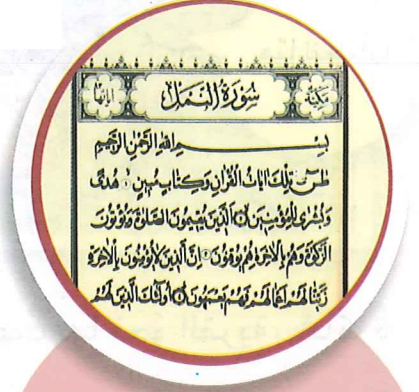 مكية سُورَةُ النَّمْلِ آياتها
بِسْمِ اللهِ الرَّحْمٰنِ الرَّحِيمِ
طٰسٓ تِلْكَ اٰيَاتُ الْقُرْاٰنِ وَكِتَابٍ مُبِينٍ ۝ هُدًى
وَبُشْرٰى لِلْمُؤْمِنِينَ ۝ الَّذِينَ يُقِيمُونَ الصَّلٰوةَ وَيُؤْتُونَ
الزَّكٰوةَ وَهُمْ بِالْاٰخِرَةِ هُمْ يُوقِنُونَ ۝ اِنَّ الَّذِينَ لَا يُؤْمِنُونَ بِالْاٰخِرَةِ
زَيَّنَّا لَهُمْ اَعْمَالَهُمْ فَهُمْ يَعْمَهُونَ ۝ اُولٰئِكَ الَّذِينَ لَهُمْ